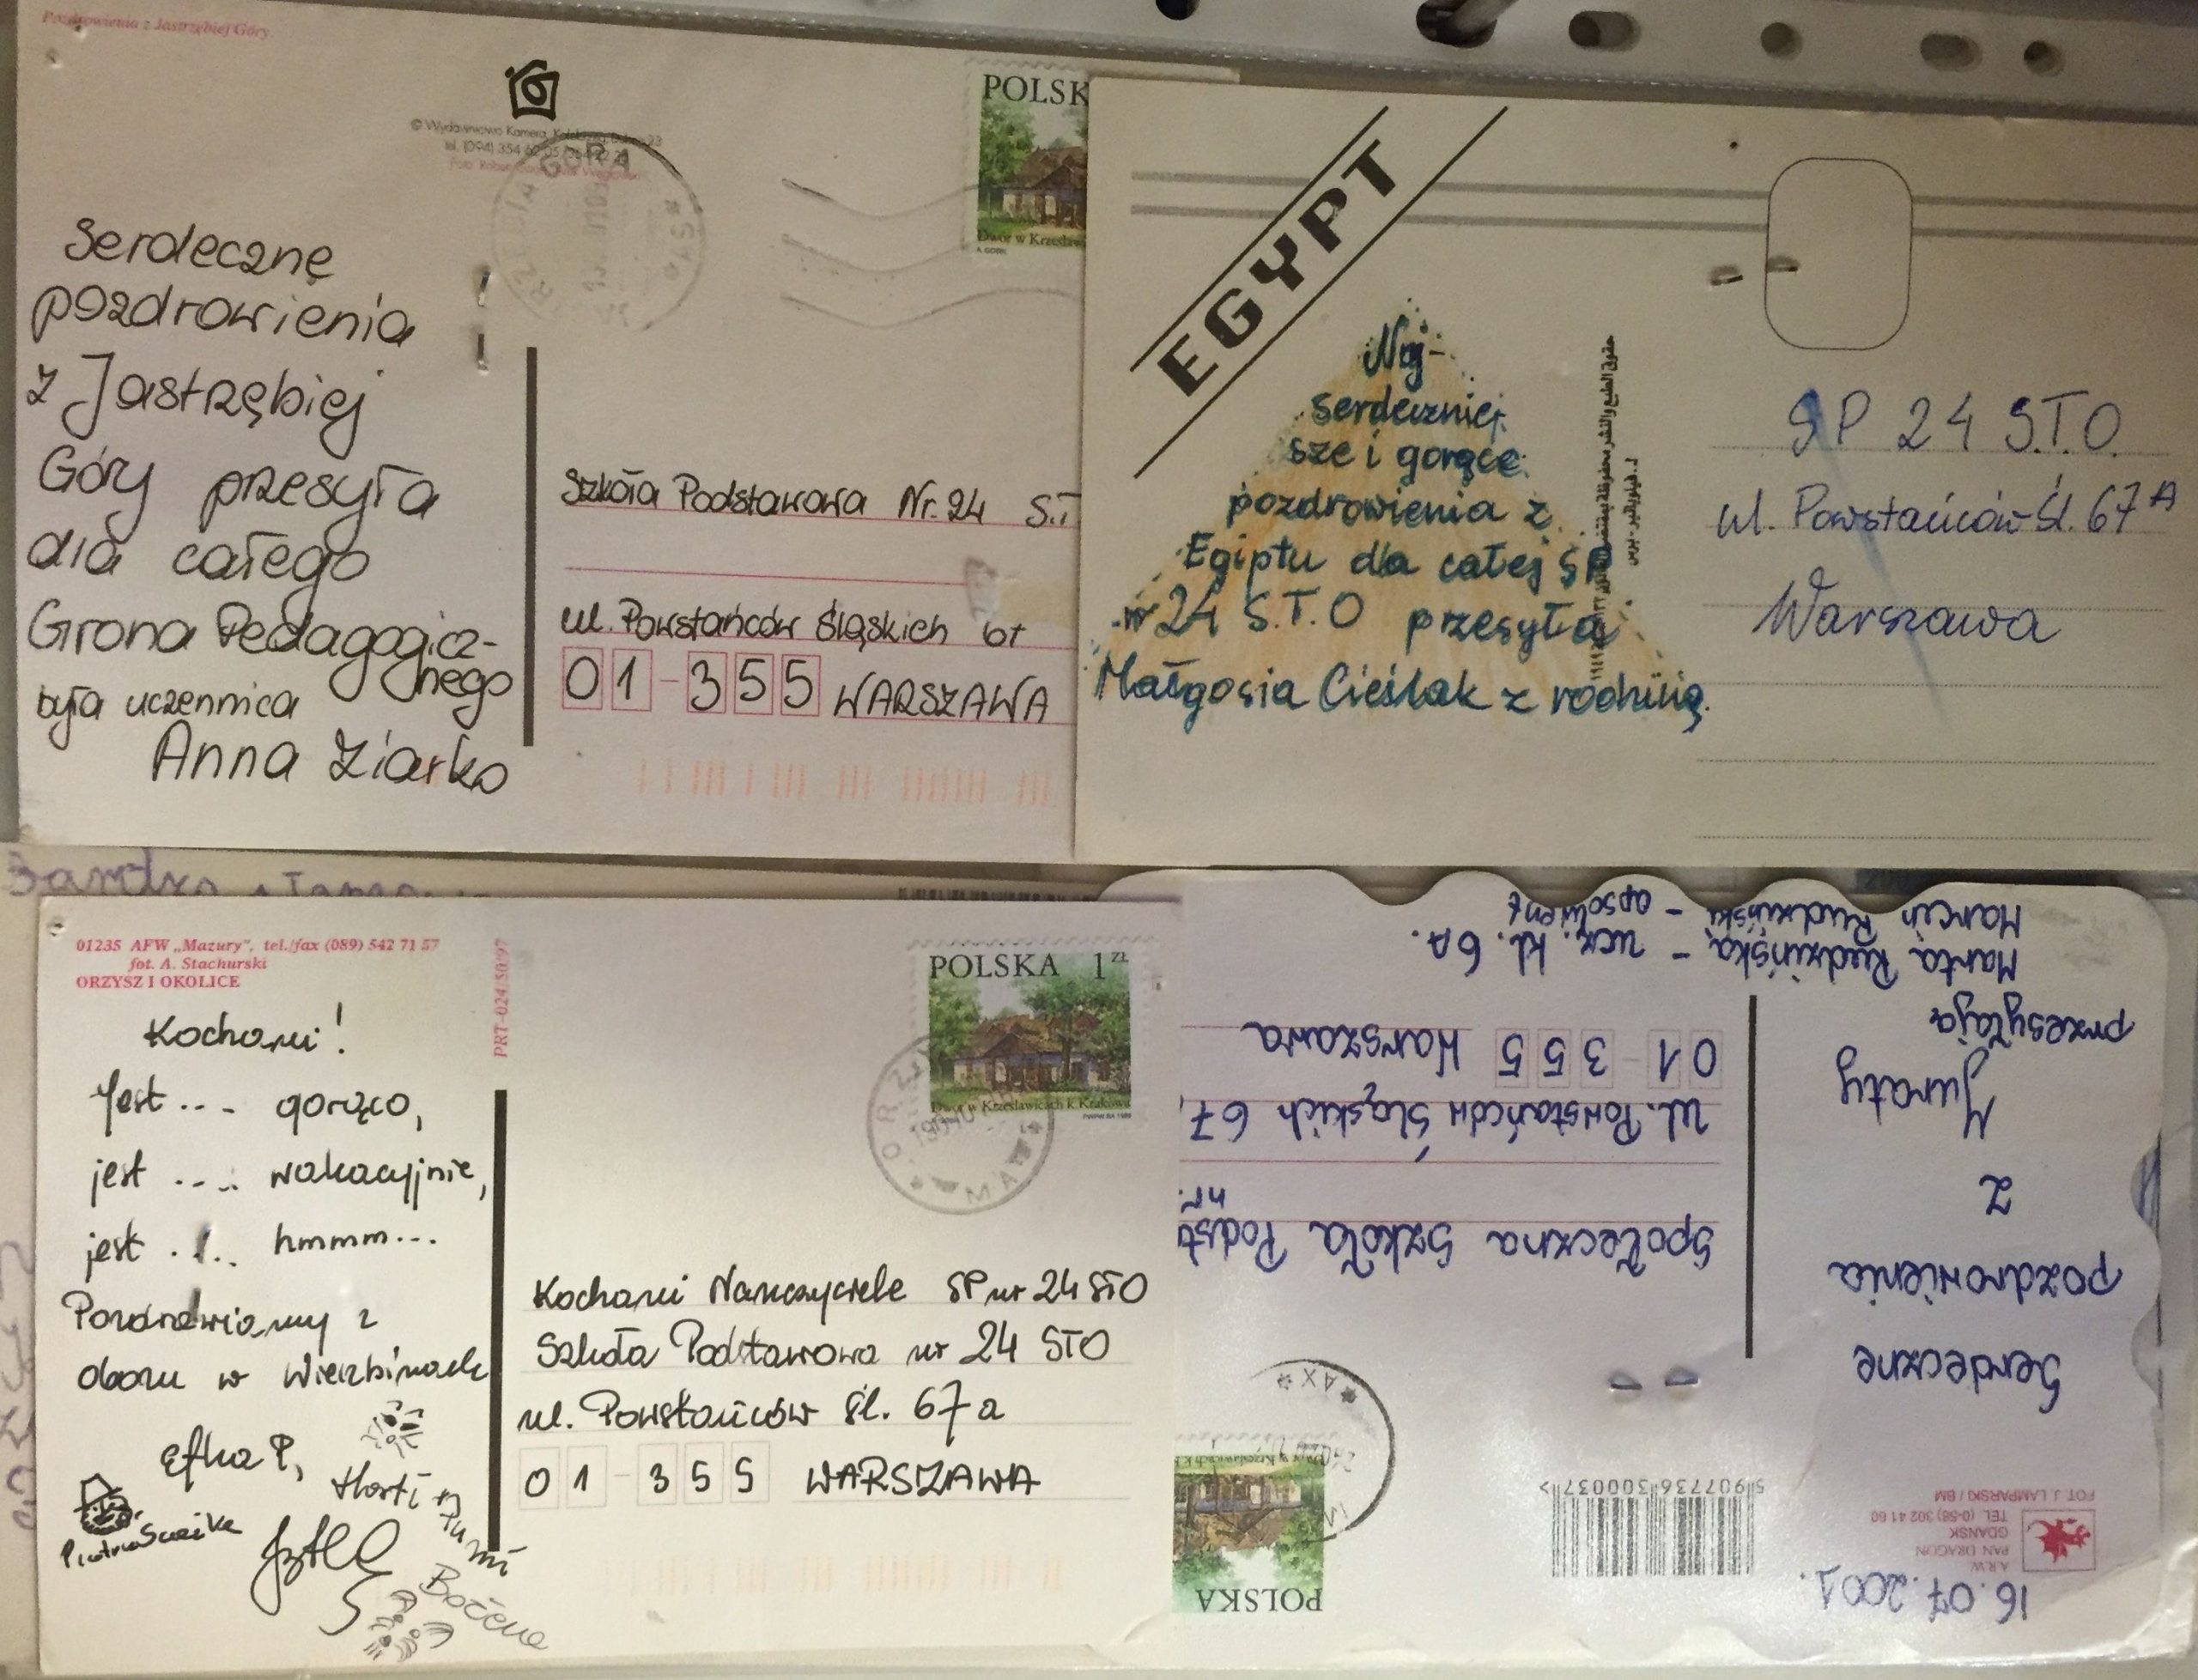 Pozdrowienia z Jastrzębiej Góry
© Wydawnictwo Kamera,
tel. (094) 354
GÓRA
POLSK
Dwór w Krzesław
Serdeczne
pozdrowienia
z Jastrzębiej
Góry przesyła
dla całego
Grona Pedagogicz-
nego
była uczennica
Anna Ziarko
Szkoła Podstawowa Nr. 24 S.T
ul. Powstańców Śląskich 67
01-355 WARSZAWA
EGYPT
Naj-
serdeczniej
sze i gorące
pozdrowienia z
Egiptu dla całej SP
nr 24 S.T.O przesyła
Małgosia Cieślak z rodziną.
SP 24 S.T.O.
ul. Powstańców Śl. 67A
Warszawa
01235 AFW „Mazury”, tel./fax (089) 542 71 57
fot. A. Stachurski
ORZYSZ I OKOLICE
PRT-024/50/97
POLSKA 1 ZŁ
Dwór w Krzesławicach k. Krakowa
Kochani!
Jest ... gorąco,
jest .... wakacyjnie,
jest .... hmmm...
Pozdrawiamy z
obozu w Wierzbinach
Efka P,
Bożena
Kochani Nauczyciele SP nr 24 STO
Szkoła Podstawowa nr 24 STO
ul. Powstańców śl. 67a
01-355 WARSZAWA
16.07.2001.
A.R.W.
PAN DRAGON
GDAŃSK
TEL. (0-58) 302 41 60
FOT. J. LAMPARSKI / BM
5 907736 300037 >
POLSKA
Serdeczne
pozdrowienia
z
Juraty
przesyłają
Marta Rudzińska - ucz. kl. 6A.
Marcin Rudziński - absolwent
Społeczna Szkoła Podst
nr.
ul. Powstańców Śląskich 67,
01-355 Warszawa